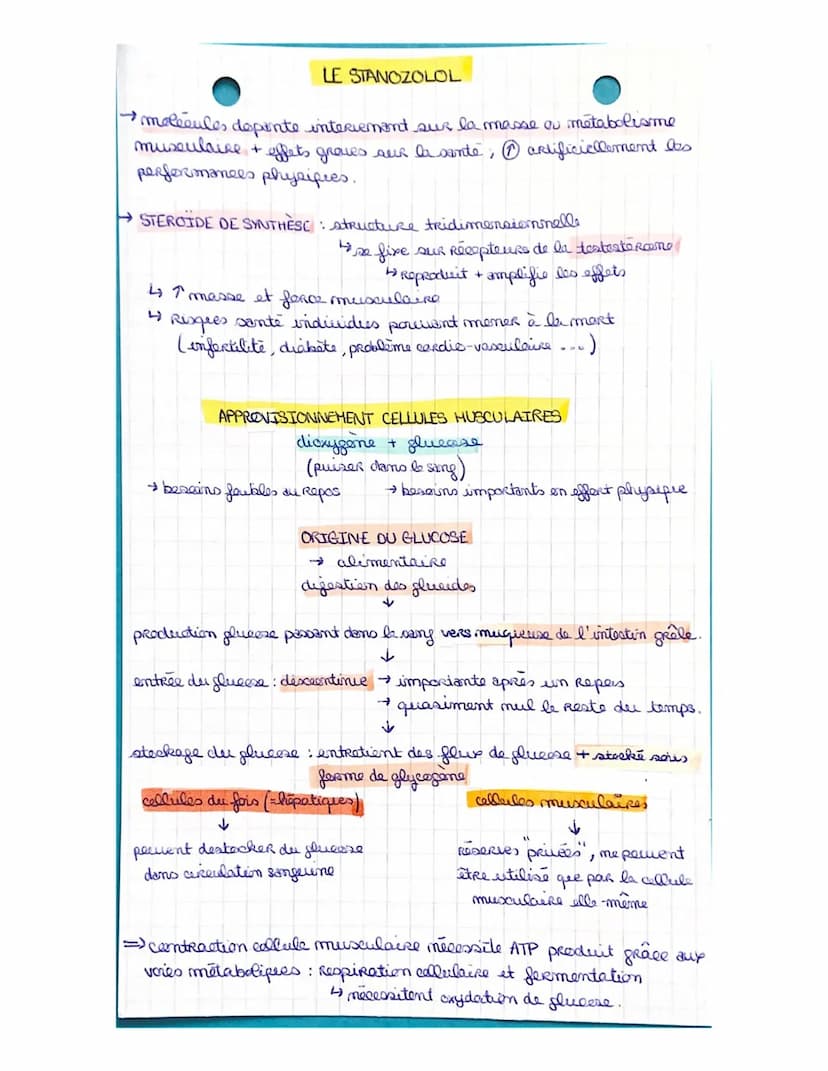 LE STANOZOLOL
→ molécules dopante intervienent sur la masse ou métabolisme
musculaire + effets graves sur la santé, ↑ artificiellement les
performances physiques.
→ STEROÏDE DE SYNTHÈSE : structure tridimensionnelle
↳ se fixe sur récepteurs de la testostérone
↳ reproduit + amplifie les effets
↳ ↑ masse et force musculaire
↳ Risques santé individus pouvant mener à la mort
(infertilité, diabète, problème cardio-vasculaire ...)
APPROVISIONNEMENT CELLULES MUSCULAIRES
dioxygène + glucose
(puiser dans le sang)
→ besoins faibles au repos → besoins importants en effort physique
ORIGINE DU GLUCOSE
→ alimentaire
digestion des glucides
↓
production glucose passant dans le sang vers muqueuse de l'intestin grêle.
↓
entrée du glucose : discontinue → importante après un repas
→ quasiment nul le reste du temps.
↓
stockage du glucose : entretient des flux de glucose + stocké sous
forme de glycogène
cellules du foie (=hépatiques) cellules musculaires
↓ ↓
peuvent destocker du glucose
dans circulation sanguine
réserves "privées", ne peuvent
être utilisé que par la cellule
musculaire elle-même
⇒ contraction cellule musculaire nécessite ATP produit grâce aux
voies métaboliques : respiration cellulaire et fermentation
↳ nécessitent oxydation de glucose.